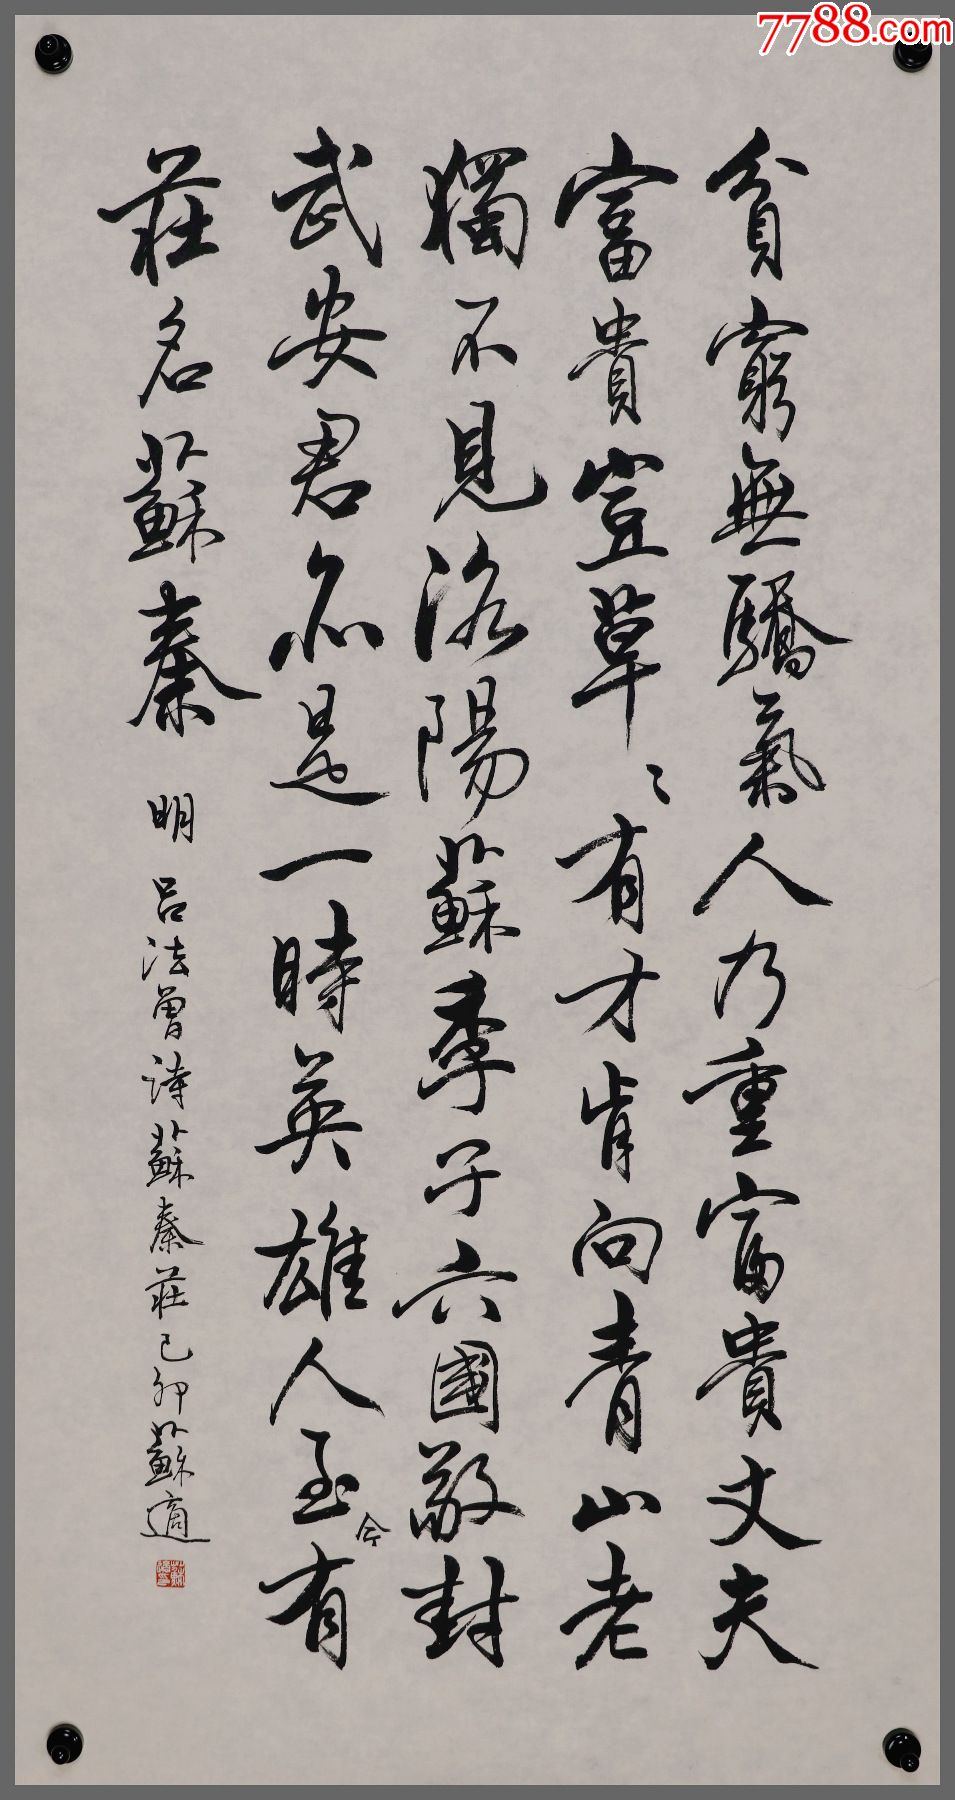 7788.com
貧窮無驕氣人乃重富貴丈夫
富貴豈草〻有才肯向青山老
獨不見洛陽蘇季子六國敬封
武安君亦是一時英雄人至今有
莊名蘇秦
明 呂法曾詩蘇秦莊己卯蘇適